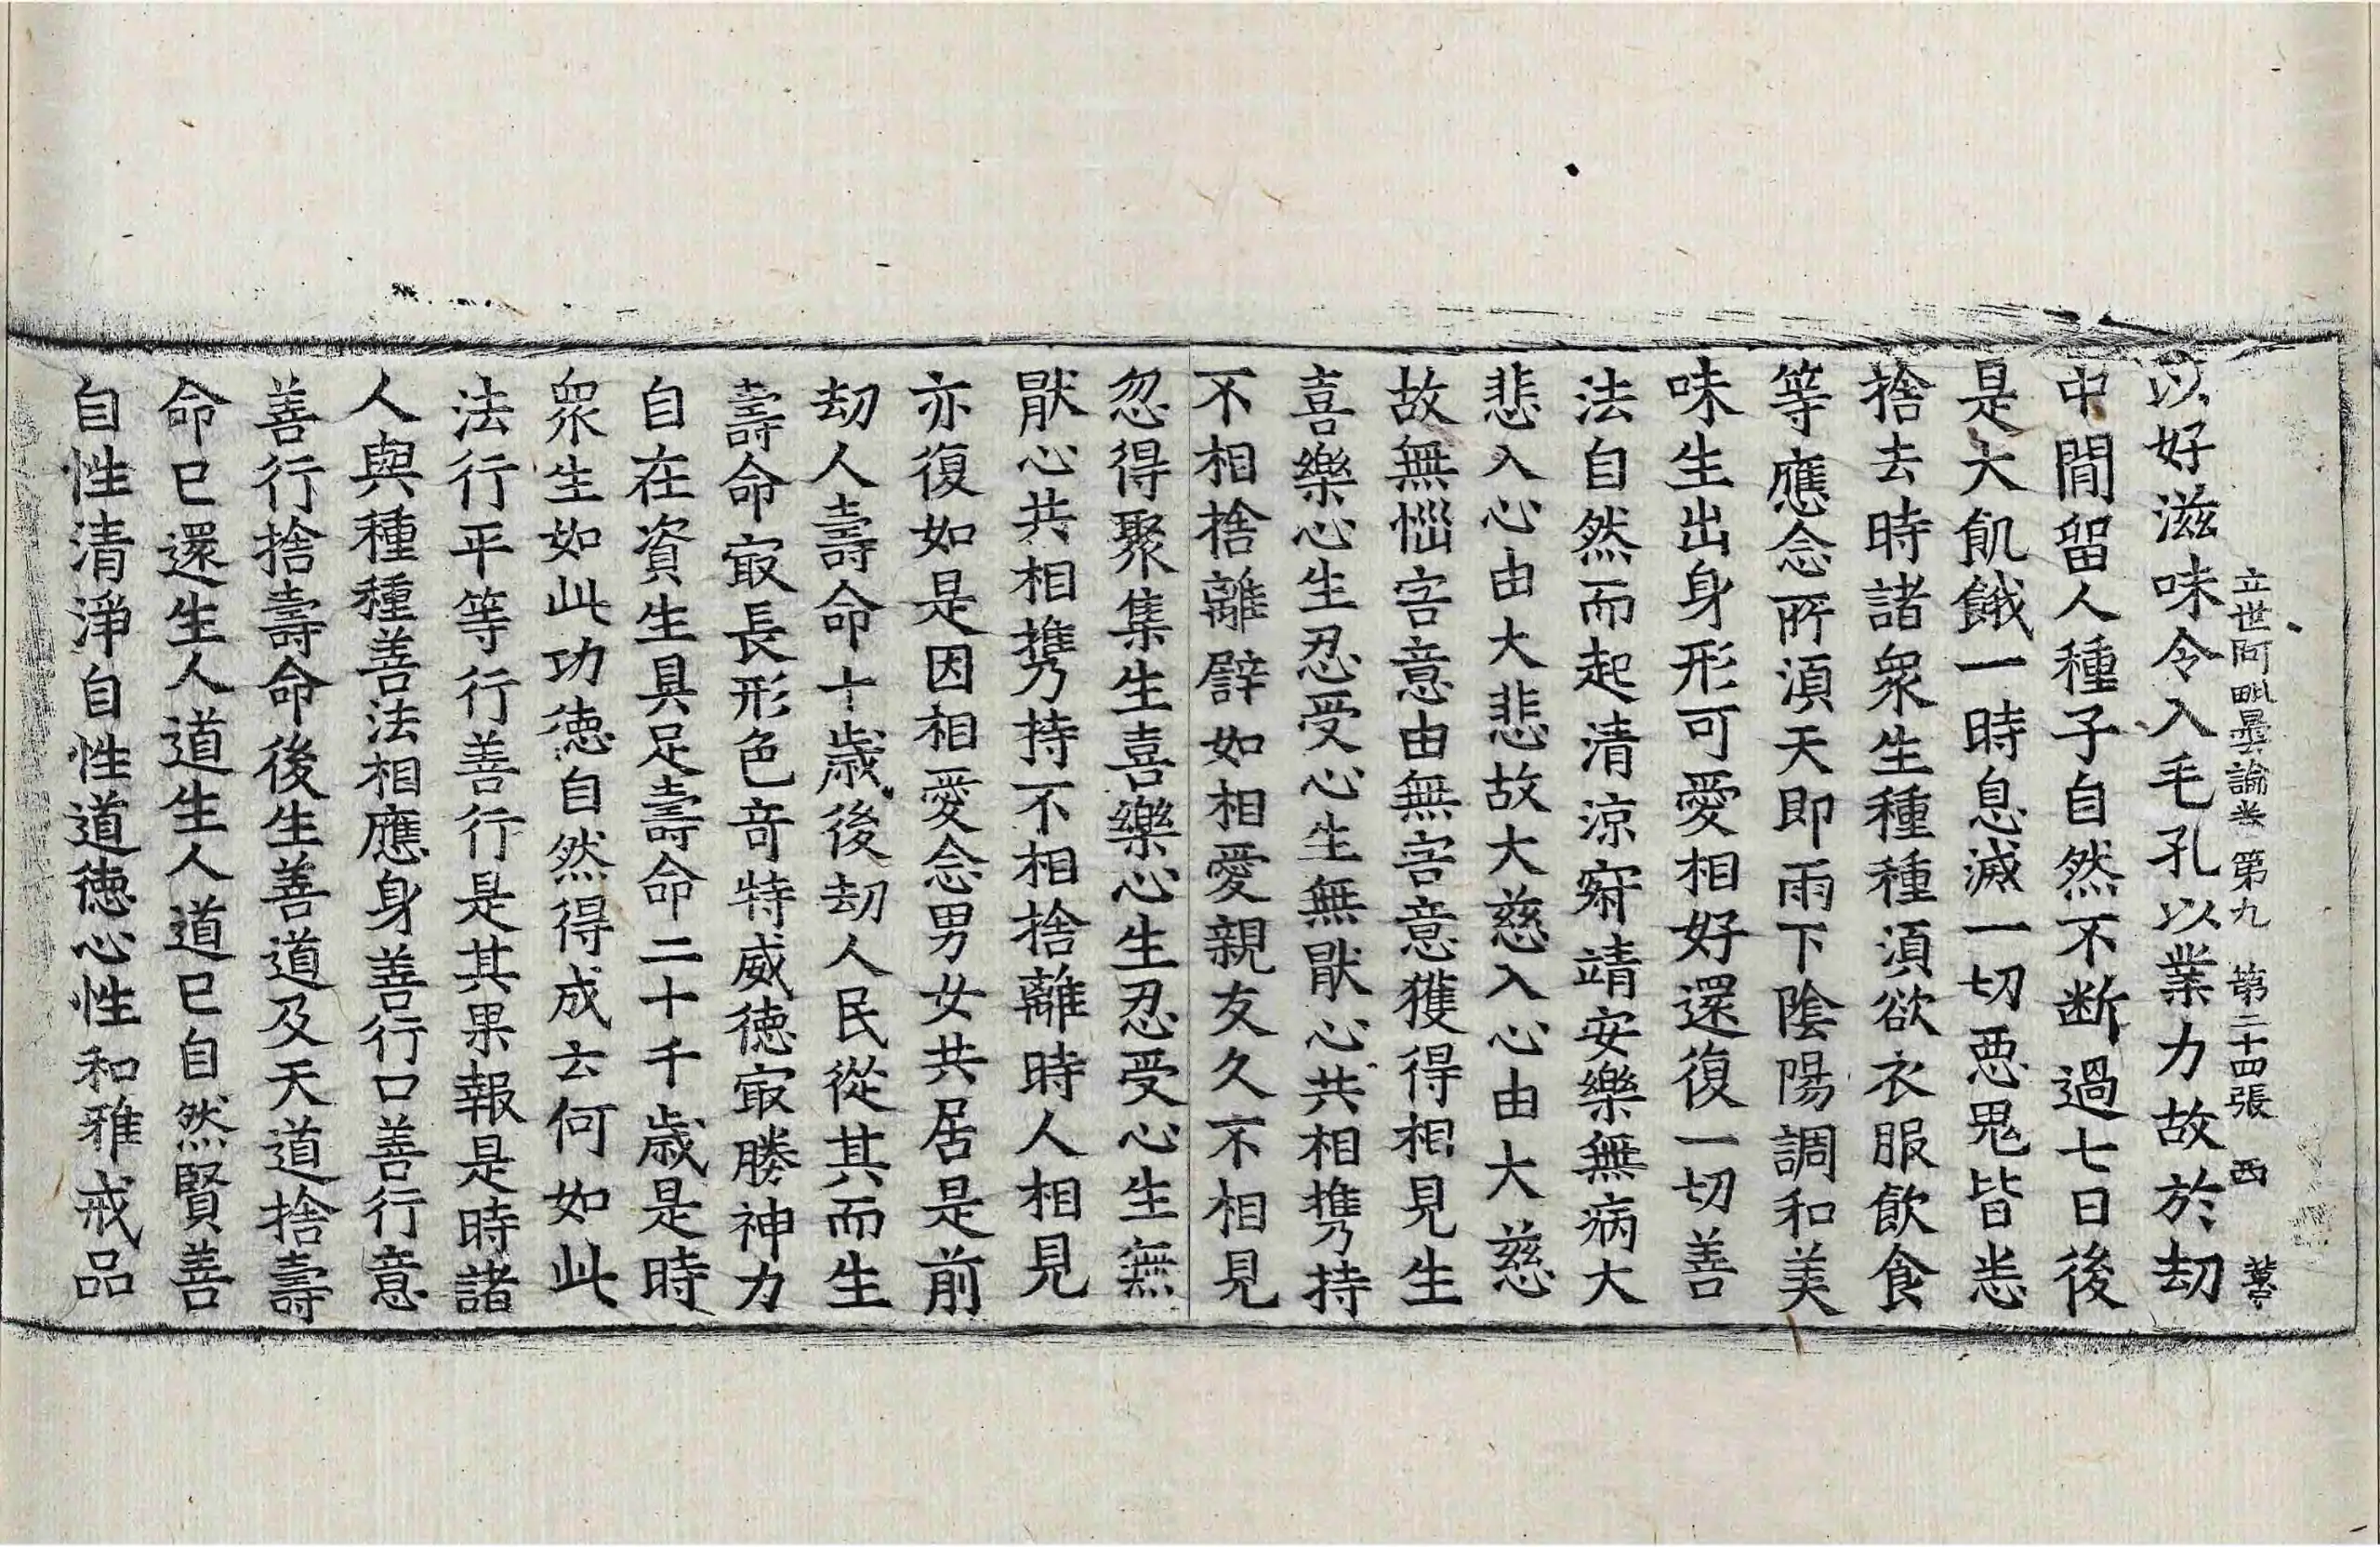 立世阿毗曇論卷第九 第二十四張 西
以好滋味令入毛孔以業力故於劫
中間留人種子自然不断過七日後
是大飢餓一時息滅一切恶鬼皆悉
捨去時諸衆生種種湏欲衣服飲食
等應念所湏天即雨下陰陽調和美
味生出身形可愛相好還復一切善
法自然而起清涼㝛靖安樂無病大
悲入心由大悲故大慈入心由大慈
故無惱害意由無害意獲得相見生
喜樂心生忍受心生無猒心共相攜持
不相捨離譬如相愛親友久不相見
忽得聚集生喜樂心生忍受心生無
猒心共相攜持不相捨離時人相見
亦復如是因相愛念男女共居是前
劫人壽命十歳後劫人民從其而生
壽命㝡長形色竒特威徳㝡勝神力
自在資生具足壽命二十千歳是時
衆生如此功徳自然得成云何如此
法行平等行善行是其果報是時諸
人與種種善法相應身善行口善行意
善行捨壽命後生善道及天道捨壽
命已還生人道生人道已自然賢善
自性清淨自性道徳心性和雅戒品